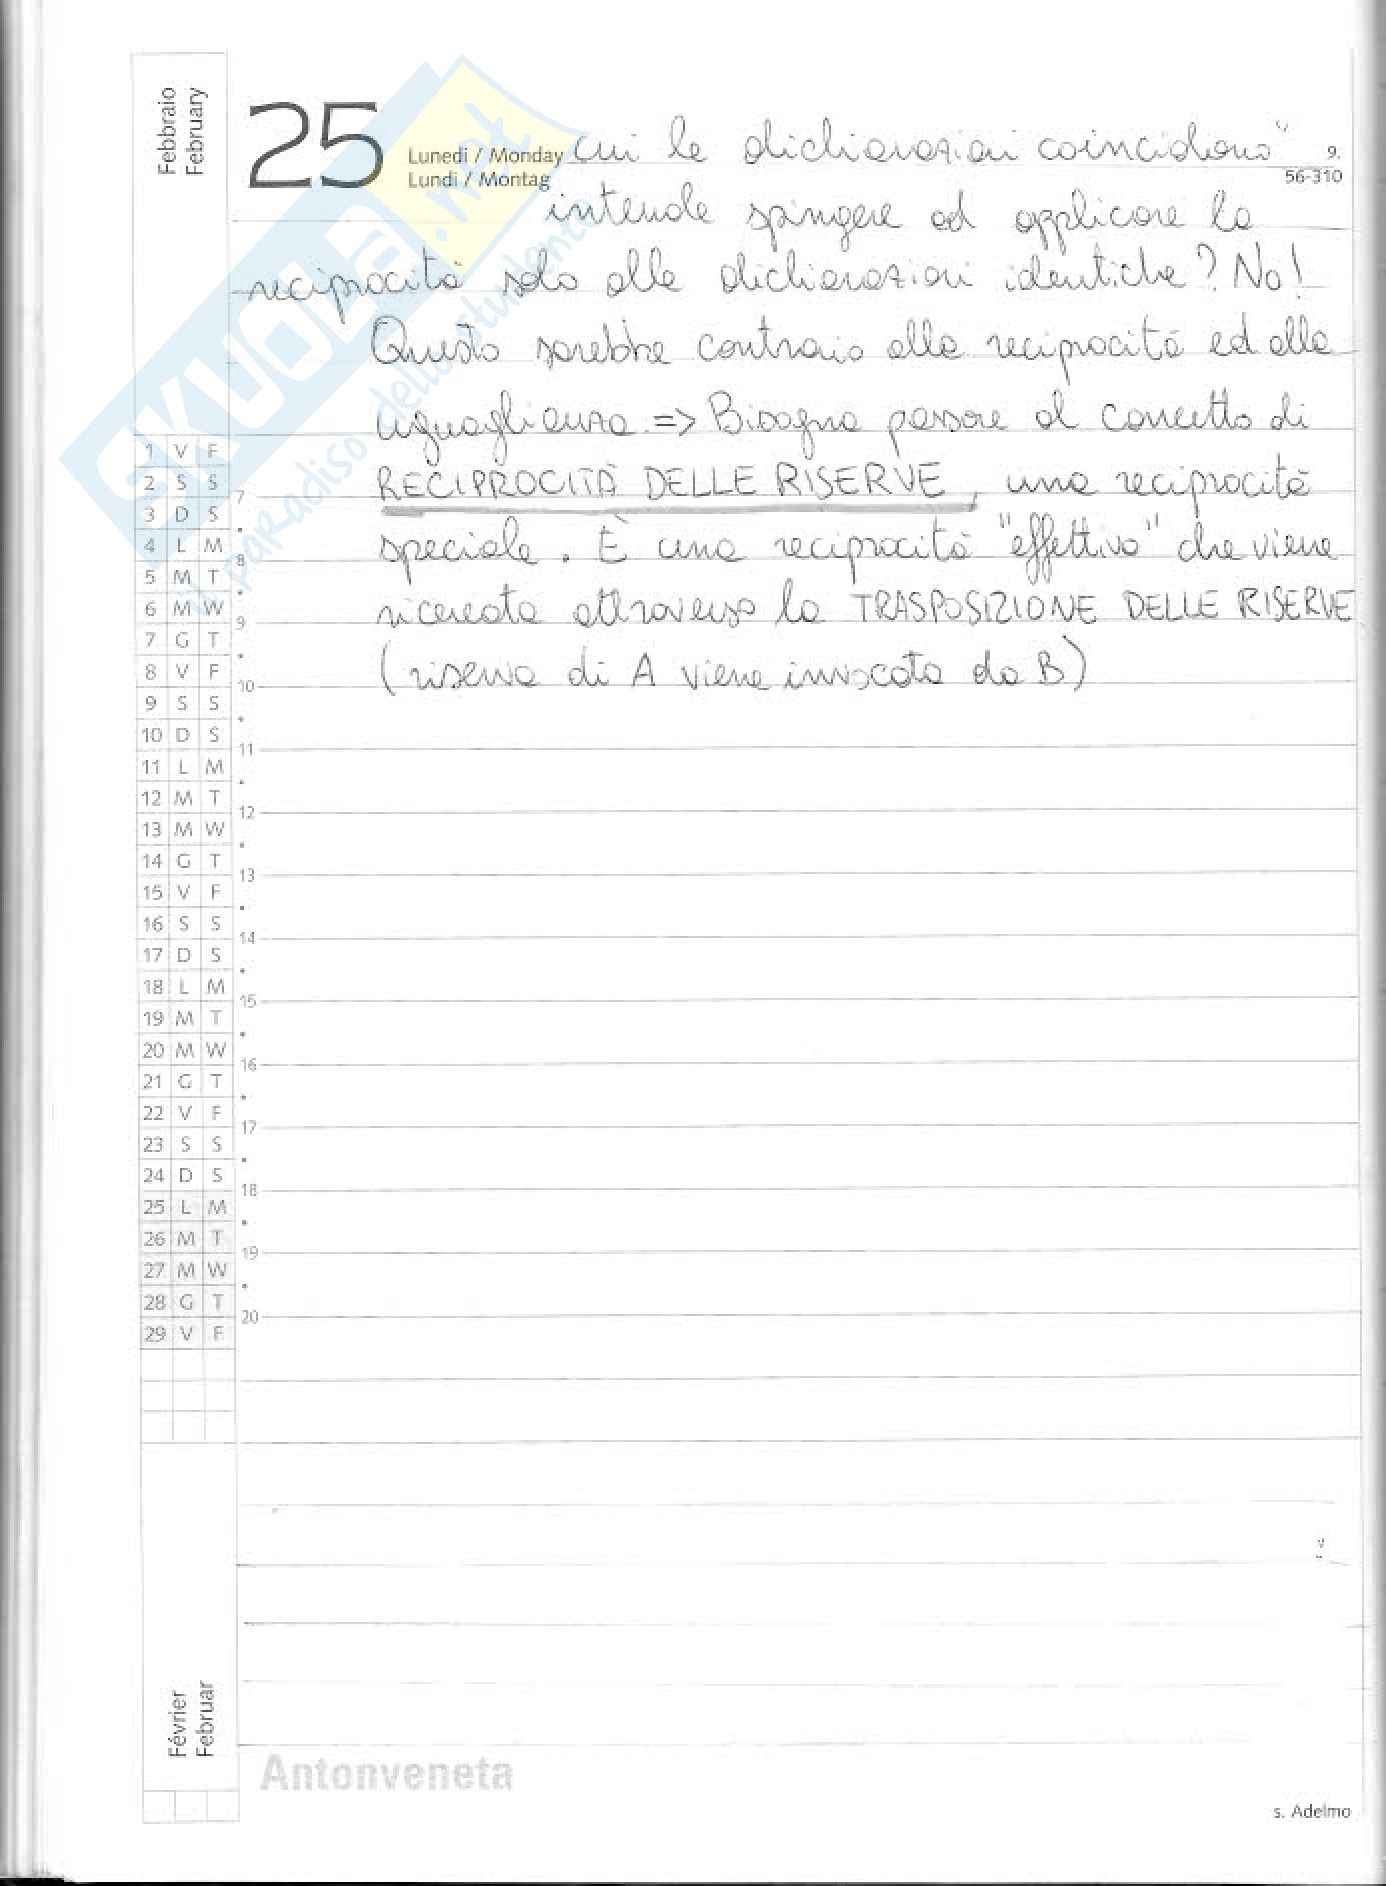 Febbraio
February
25
Lunedì / Monday
Lundi / Montag
9.
56-310
cui le dichiarazioni coincidono"
intende spingere ad applicare la
reciprocità solo alle dichiarazioni identiche? No!
Questo sarebbe contraio alla reciprocità ed alla
uguaglianza. => Bisogna passare al concetto di
RECIPROCITÀ DELLE RISERVE, una reciprocità
speciale. È una reciprocità "effettiva" che viene
ricercata attraverso la TRASPOSIZIONE DELLE RISERVE
(riserva di A viene invocata da B)
SKUOLA.net
il paradiso dello studente
1 V F
2 S S
3 D S
4 L M
5 M T
6 M W
7 G T
8 V F
9 S S
10 D S
11 L M
12 M T
13 M W
14 G T
15 V F
16 S S
17 D S
18 L M
19 M T
20 M W
21 G T
22 V F
23 S S
24 D S
25 L M
26 M T
27 M W
28 G T
29 V F
7
8
9
10
11
12
13
14
15
16
17
18
19
20
Février
Februar
Antonveneta
s. Adelmo